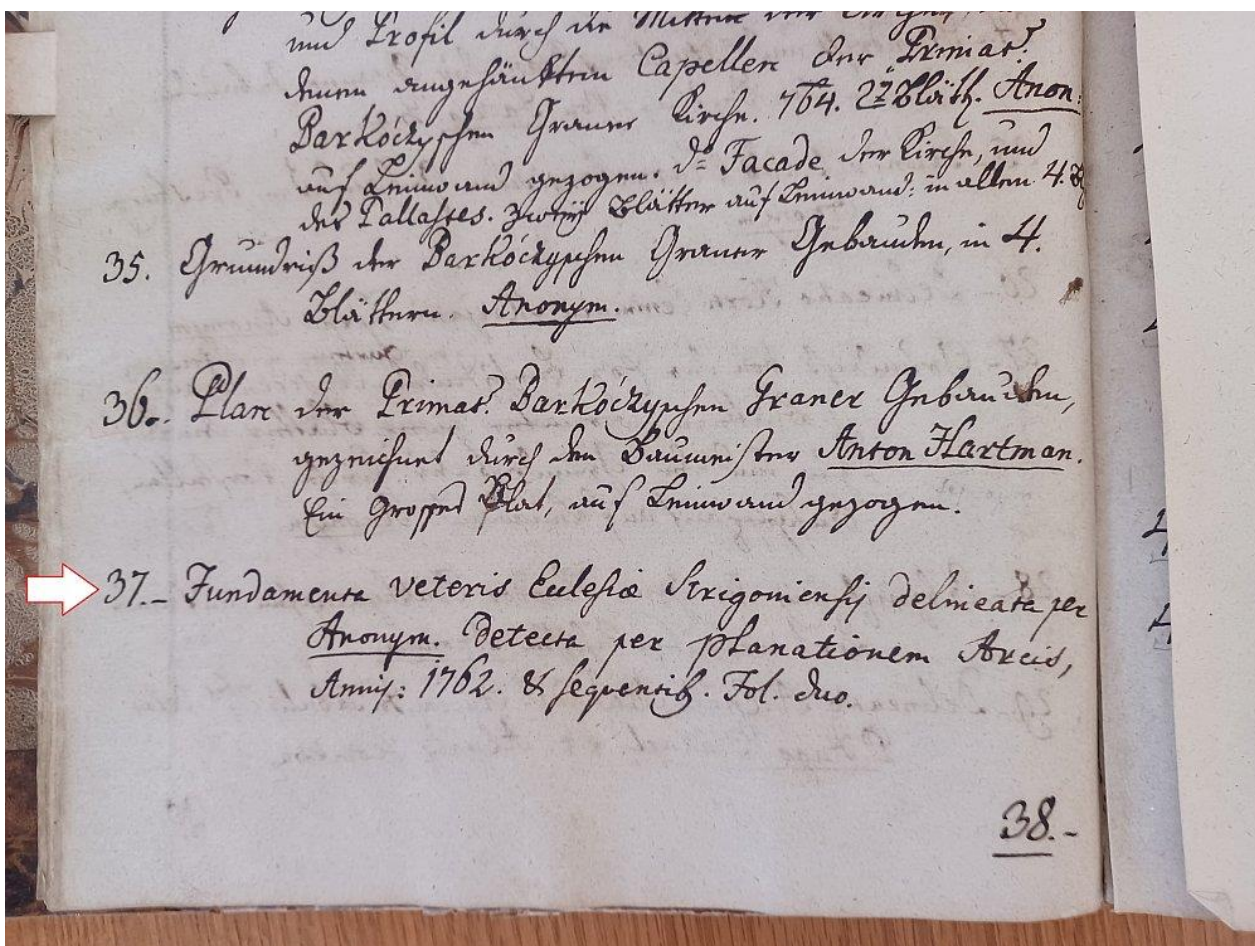 und Profil durch die Mitten der
denen angehänkten Capellen der Primat.
Barkóczyschen Graner Kirche. 764. 2 Blätt. Anon:
auf Leinwand gezogen. d= Facade der Kirche, und
des Pallastes. Zweÿ Blätter auf Leinwand: in allem 4.
35. Grundriß der Barkóczyschen Graner Gebäuden, in 4.
Blättern. Anonym.
36.. Plan der Primat. Barkóczyschen Graner Gebäuden,
gezeichnet durch den Baumeister Anton Hartman.
Ein grosses Blat, auf Leinwand gezogen.
37.- Fundamenta veteris Eclesiæ Strigoniensis delineata per
Anonym. Detecta per planationem Arcis,
Annis: 1762. & sequentib. Fol. duo.
38.-